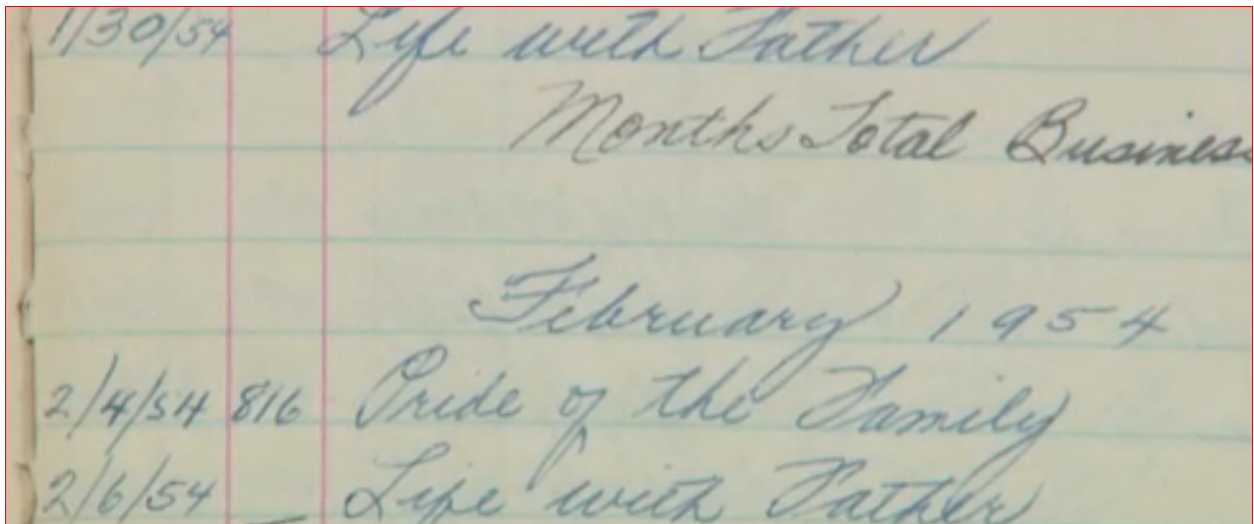 1/30/54 Life with Father
Months Total Business
February 1954
2/4/54 816 Pride of the Family
2/6/54 Life with Father